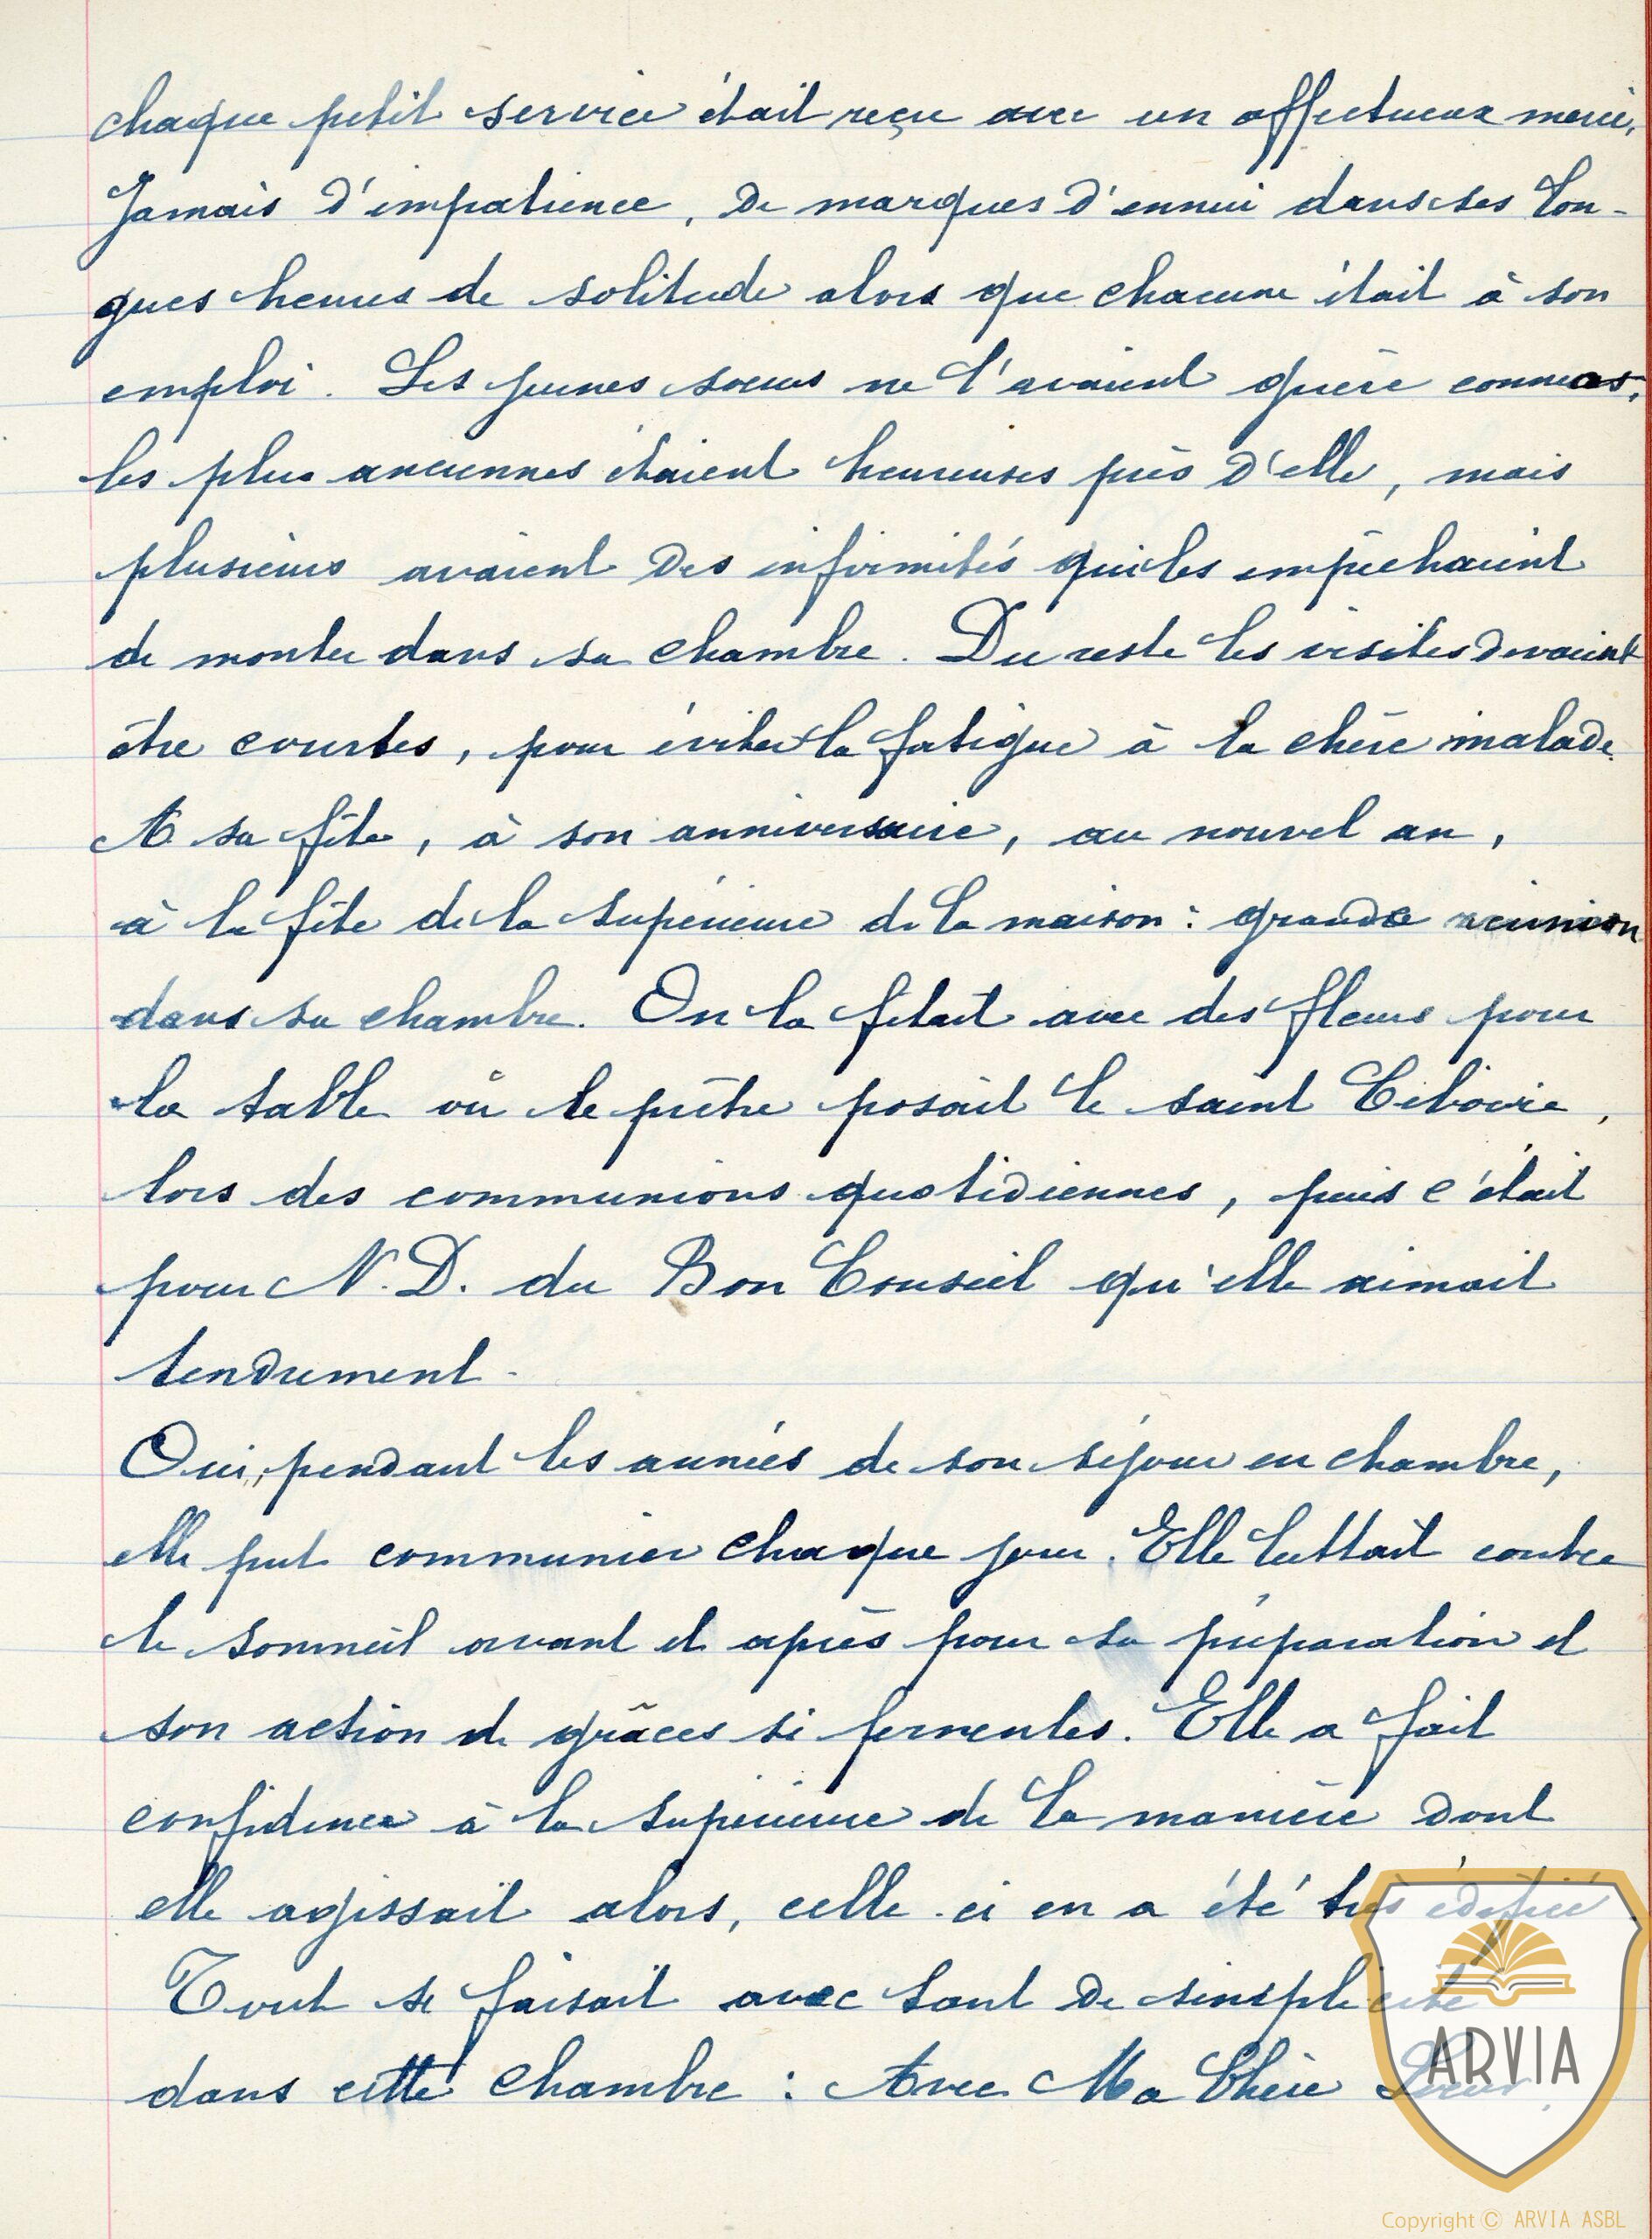 chaque petit service était reçu avec un affectueux merci,
Jamais d'impatience, de marques d'ennui dans ses lon-
gues heures de solitude alors que chacune était à son
emploi. Les jeunes sœurs ne l'avaient guère connues,
les plus anciennes étaient heureuses près d'elle, mais
plusieurs avaient des infirmités qui les empêchaient
de monter dans sa chambre. Du reste les visites devaient
être courtes, pour éviter la fatigue à la chère malade.
A sa fête, à son anniversaire, au nouvel an,
à la fête de la supérieure de la maison : grande réunion
dans sa chambre. On la fêtait avec des fleurs pour
la table où le prêtre posait le saint Ciboire,
lors des communions quotidiennes, puis c'était
pour N.D. du Bon Conseil qu'elle aimait
tendrement.
Oui, pendant les années de son séjour en chambre,
elle put communier chaque jour. Elle luttait contre
le sommeil avant et après pour sa préparation et
son action de grâces si ferventes. Elle a fait
confidence à la supérieure de la manière dont
elle agissait alors, celle-ci en a été très édifiée.
Tout se faisait avec tant de simplicité
dans cette chambre : Avec Ma Chère Sœur,
ARVIA
Copyright © ARVIA ASBL